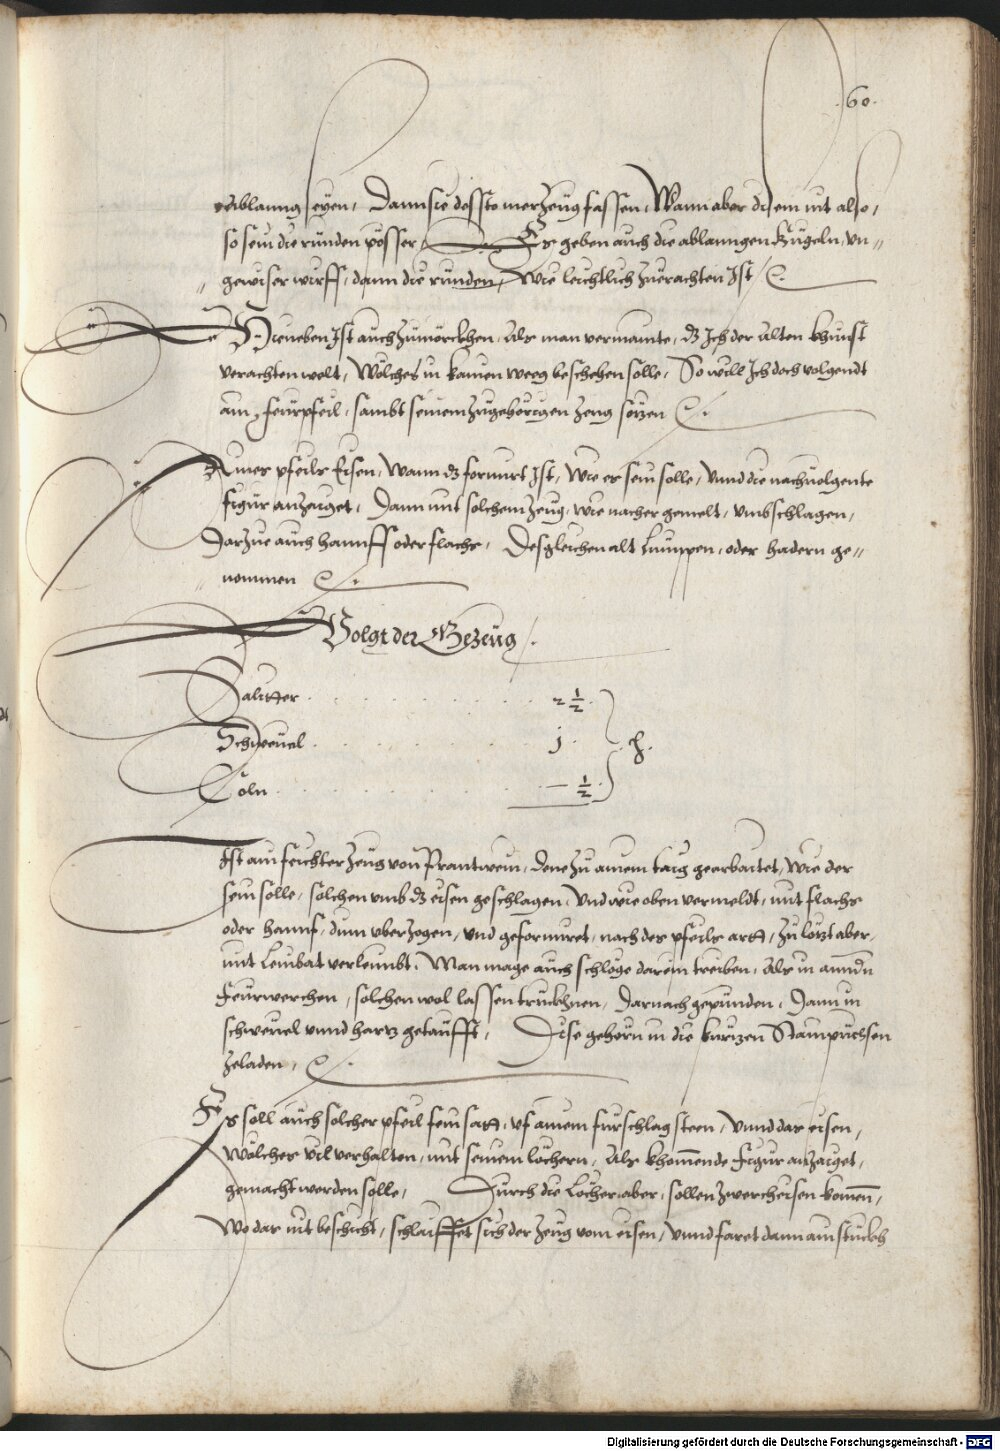 .60.
ablanng seyen, Dann sie dessto mer Zeüg fassen, Wann aber disem nit also,
so sein die runden pösser, Es geben auch die ablanngen Kügeln, un„
„ gewiser würff, dann die runden, Wie leichtlich zuerachten Ist
Hieneben Ist auch zumörckhen, Als man vermainte, dz Ich der Alten khunst
verachten welt, Wölches in kainen weeg beschehen solle, So will Ich doch volgendt
ain feürpfeil, sambt seinem zugehörigen zeug sötzen
Ainer pfeils Eisen, Wann dz formirt Ist, Wie es sein solle, Vnnd die nachuolgente
figur anzaiget, Dann mit solchem zeug, wie nacher gemelt, vmbschlagen,
Darzue auch hannff oder flachs, Desgleichen alt Lumppen, oder hadern ge„
„ nommen
Volgt der Gezeüg
Salitter . . . . . . 2 ½
Schweuel . . . . . . j
Coln . . . . . . — ½
Ist ain feichter Zeug von Prantwein, dene zu ainem taig gearbaitet, Wie der
sein solle, solchen vmb dz eisen geschlagen, Vnd wie oben vermeldt, mit flachs
oder hannf, dinn vberzogen, vnd geformiret, nach des pfeils artt, zu lötzt aber,
mit Leinbat verleimbt. Man mage auch schlöge darein treiben, Als in anndn
Feürwerchen, solchen wol lassen trückhnen, Darnach gepunden, Dann in
schweuel vnnd hartz getaufft, Dise gehörn in die kurtzen Stainpüchsen
zeladen,
Es soll auch solcher pfeil fein satt, vf ainem fürschlag steen, Vnnd das eisen,
Wölches vil verhalten, mit seinem löchern, Als khomende figur anzaiget,
gemacht werden solle, Durch die Löcher aber, sollen zwercheisen komen,
Wo das nit beschicht, schlaiffet sich der zeug vom eisen, Vnnd faret dann ain stückh
Digitalisierung gefördert durch die Deutsche Forschungsgemeinschaft - DFG